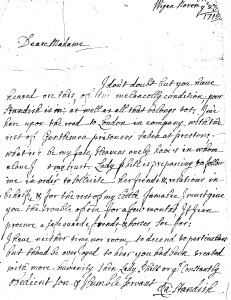 Wigan Novem 
1715
Dear Madame
I don't doubt but you have
heard on this of the melancolly condition poor
Standish is in: as well as all that belongs to
upon the road to London in company with the
rest of Gentlemen prisoners taken at preston:
what is to be my fate, Heavens only knows in whom
alone I my trust. Lady phill is prepareing to follow
me in order to sollicite her friends & relations in
behalfe, & for the rest of my little famalie I must give
you the trouble of for a few months if I can
procure a safe guarde, & horses for;
I have neither time nor room to descend to perticulars
but should be overjoyed to hear you had been treated
with more humanity then Lady phill or yr Constantly
obedient son & humble servant
Standish